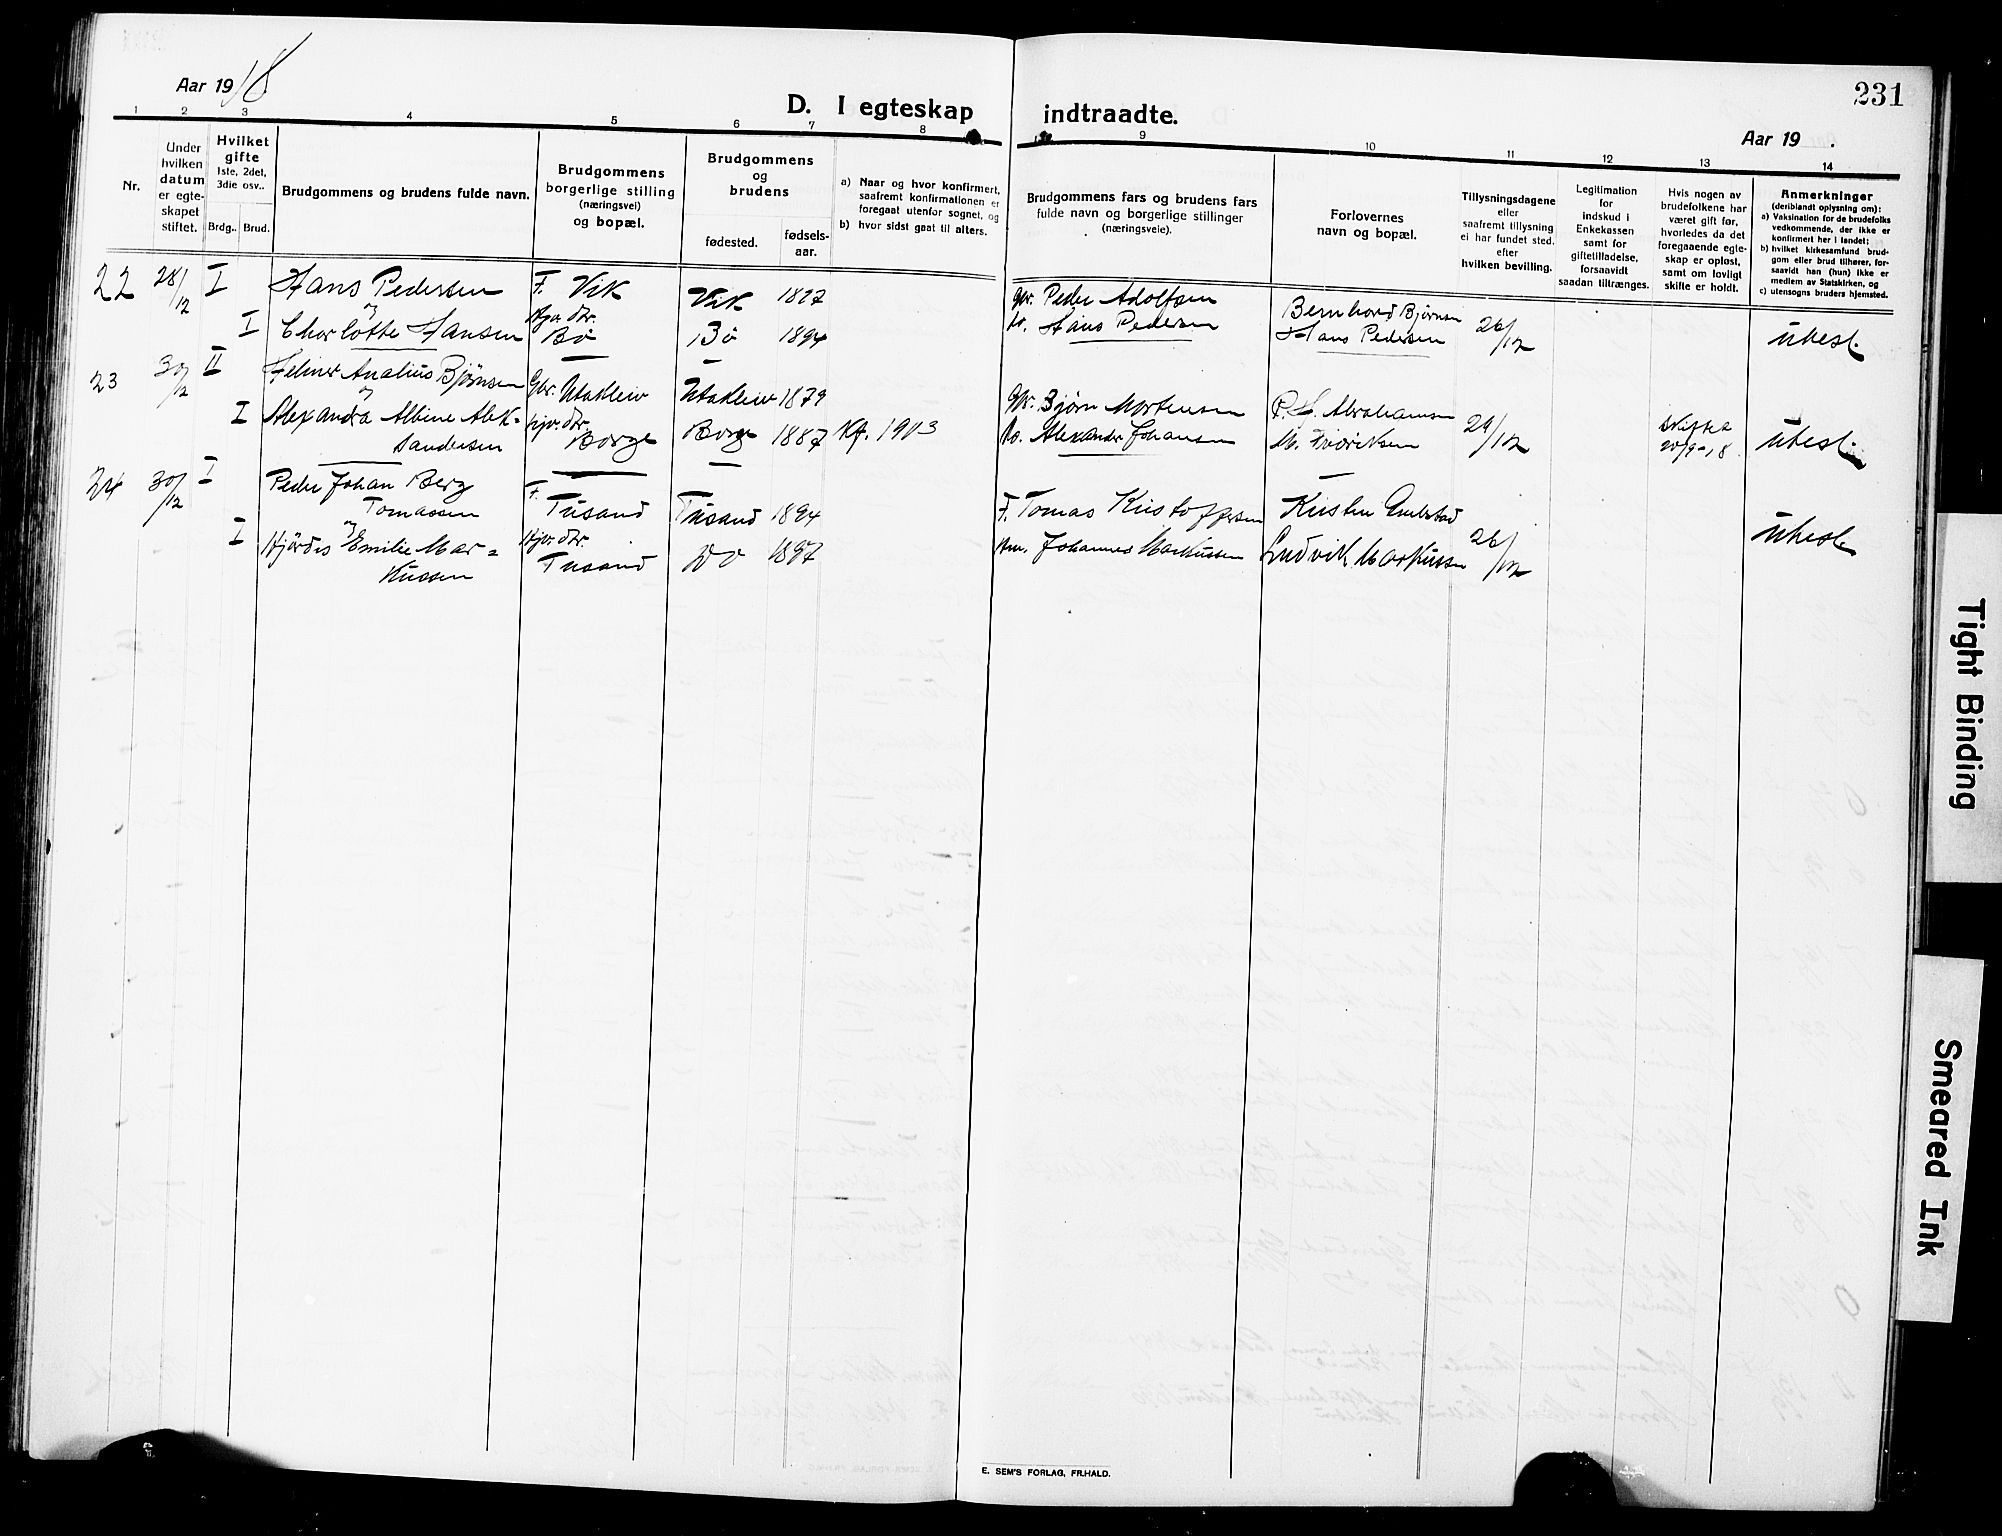 Aar 1918
D. I egteskap indtraadte.
231
Aar 19 .
1 2 3 4 5 6 7 8 9 10 11 12 13 14
Nr.
Under
hvilken
datum
er egte-
skapet
stiftet.
Hvilket
gifte
1ste, 2det,
3die osv..
Brdg.. Brud.
Brudgommens og brudens fulde navn.
Brudgommens
borgerlige stilling
(næringsvei)
og bopæl.
Brudgommens
og
brudens
fødested.
fødsels-
aar.
a) Naar og hvor konfirmert,
saafremt konfirmationen er
foregaat utenfor sognet, og
b) hvor sidst gaat til alters.
Brudgommens fars og brudens fars
fulde navn og borgerlige stillinger
(næringsveie).
Forlovernes
navn og bopæl.
Tillysningsdagene
eller
saafremt tillysning
ei har fundet sted.
efter
hvilken bevilling.
Legitimation
for
indskud i
Enkekassen
samt for
giftetilladelse,
forsaavidt
saadan tiltrænges.
Hvis nogen av
brudefolkene har
været gift før,
hvorledes da det
foregaaende egte-
skap er opløst,
samt om lovligt
skifte er holdt.
Anmerkninger
(deriblandt oplysning om):
a) Vaksination for de brudefolks
vedkommende, der ikke er
konfirmert her i landet;
b) hvilket kirkesamfund brud-
gom eller brud tilhører, for-
saavidt han (hun) ikke er
medlem av Statskirken, og
c) utensogns bruders hjemsted.
22 28/12 I Hans Pedersen F. Vik Vik 1827 Gbr. Peder Adolfsen Bernhard Bjørnsen
og
I Charlotte Hansen Hjv. dtr. Bø Bø 1894 Hans Pedersen Hans Pedersen 26/12 ubesl.
23 30/12 II Analius Bjørnsen Gbr. Utakleiv Utakleiv 1879 Gbr. Bjørn Mortensen P. H. Abrahamsen
og
I Alexanda Albine Alek-
sandersen Hjv. dtr. Borge Borge 1887 Kf. 1903 Alexander Johansen 24/12 skiftet 20/9-18 ubesl.
24 30/12 I Peder Johan Berg
Tomassen F. Tusand Tusand 1894 F. Tomas Kristoffersen
og
I Hjördis Emilie Mar-
kussen Hjv. dtr. Tusand do 1897 Johannes Markussen Ludvik Markussen 26/12 ubesl.
E. SEM'S FORLAG, FR.HALD.
Tight Binding
Smeared Ink